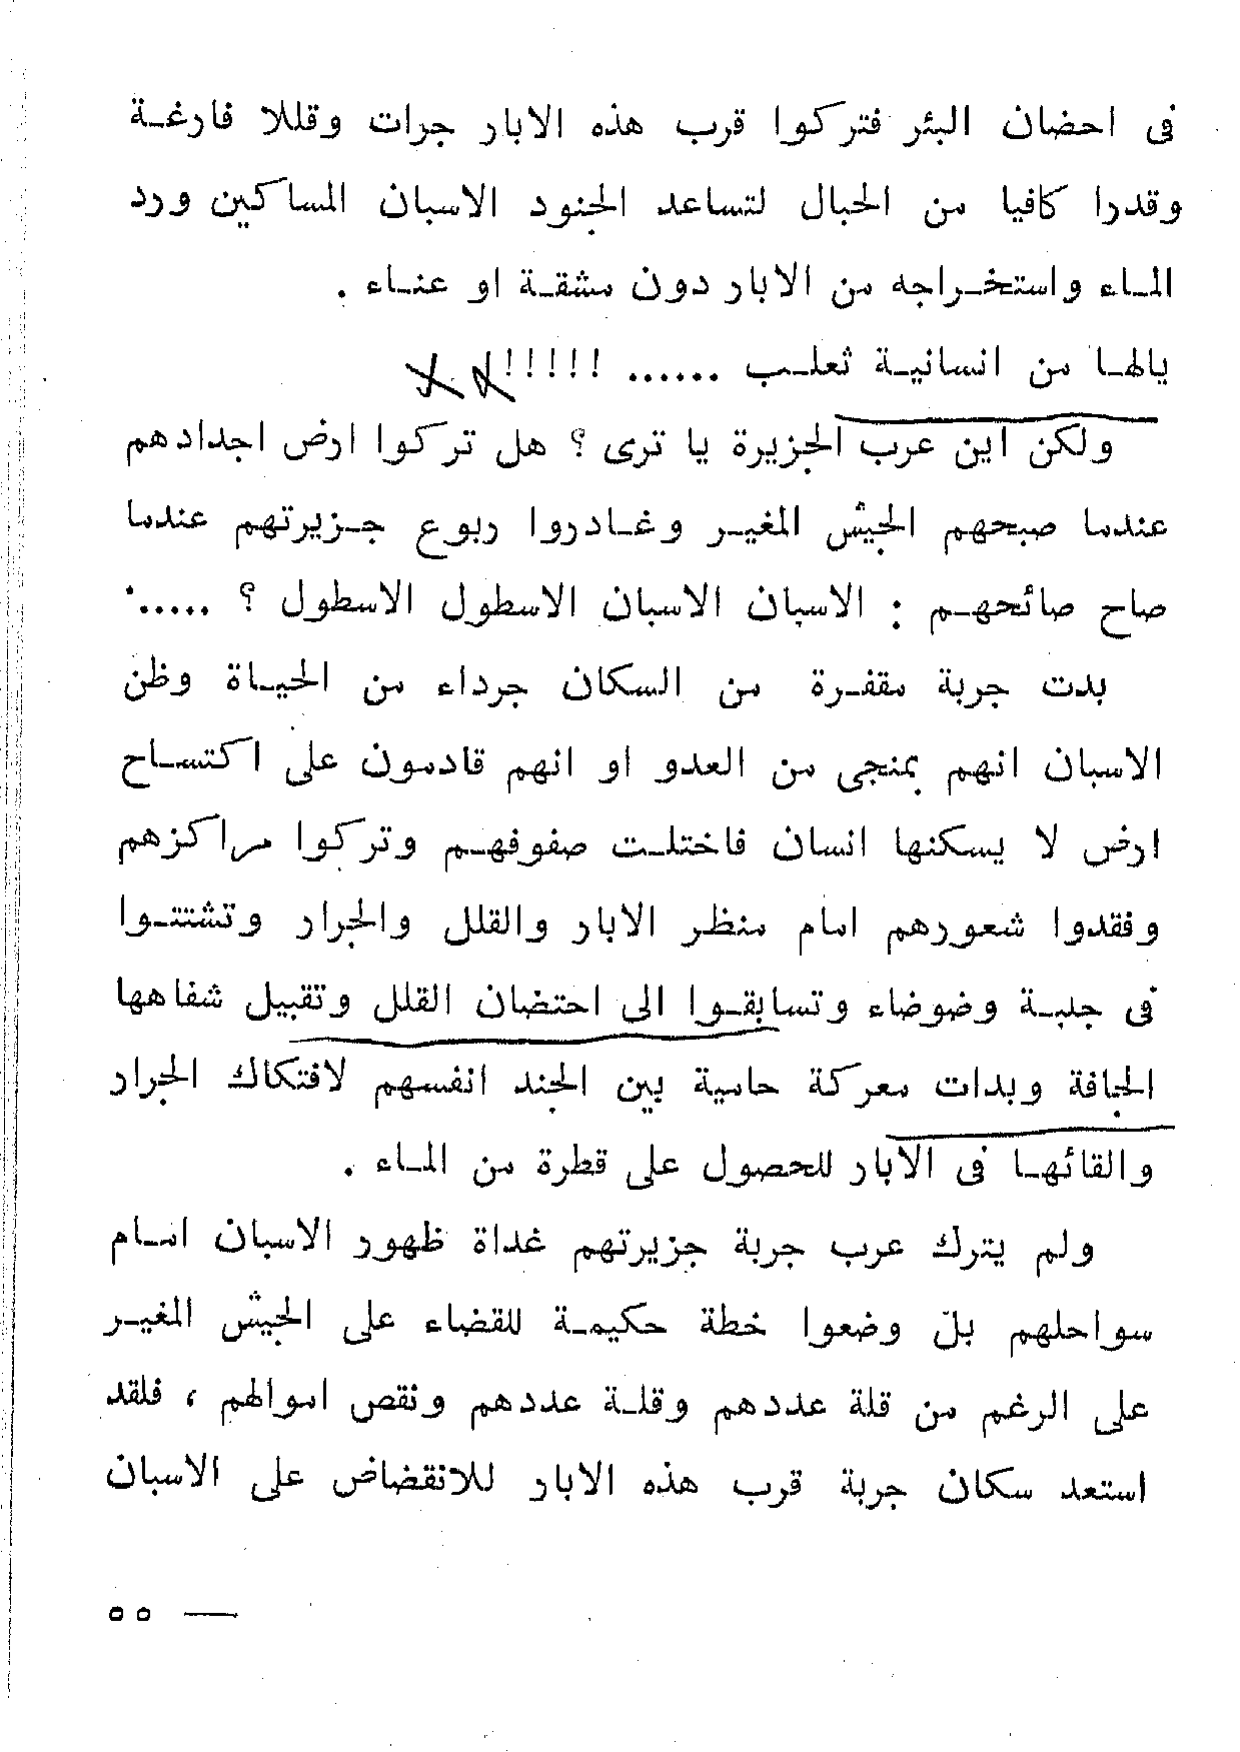 فى احضان البئر فتركوا قرب هذه الابار جرات وقللا فارغة
وقدرا كافيا من الحبال لتساعد الجنود الاسبان المساكين ورد
الماء واستخراجه من الابار دون مشقة او عناء .
يالها من انسانية ثعلب ...... !!!!!!
ولكن اين عرب الجزيرة يا ترى ؟ هل تركوا ارض اجدادهم
عندما صبحهم الجيش المغير وغادروا ربوع جزيرتهم عندما
صاح صائحهم : الاسبان الاسبان الاسطول الاسطول ؟ ......
بدت جربة مقفرة من السكان جرداء من الحياة وظن
الاسبان انهم بمنجى من العدو او انهم قادمون على اكتساح
ارض لا يسكنها انسان فاختلت صفوفهم وتركوا مراكزهم
وفقدوا شعورهم امام منظر الابار والقلل والجرار وتشتتوا
فى جلبة وضوضاء وتسابقوا الى احتضان القلل وتقبيل شفاهها
الجافة وبدات معركة حامية بين الجند انفسهم لافتكاك الجرار
والقائها فى الابار للحصول على قطرة من الماء .
ولم يترك عرب جربة جزيرتهم غداة ظهور الاسبان امام
سواحلهم بل وضعوا خطة حكيمة للقضاء على الجيش المغير
على الرغم من قلة عددهم وقلة عددهم ونقص اموالهم ، فلقد
استعد سكان جربة قرب هذه الابار للانقضاض على الاسبان
— ٥٥